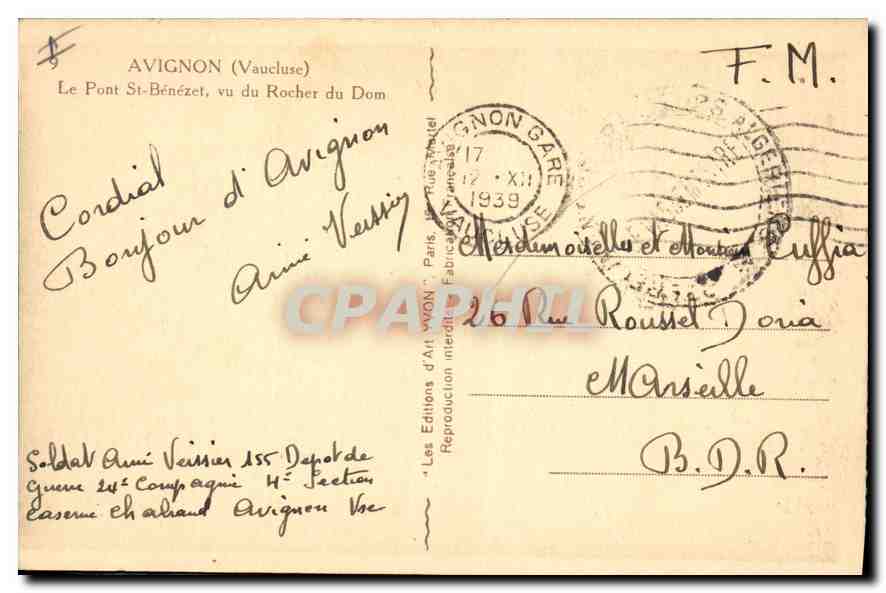 AVIGNON (Vaucluse)
Le Pont St-Bénézet, vu du Rocher du Dom
F.M.
Cordial
Bonjour d'Avignon
Aimé Veissier
AVIGNON GARE
17
12 · XII
1939
VAUCLUSE
"Les Editions d'Art YVON". Paris, 15, Rue Martel
Reproduction interdite Fabrication Française
Mesdemoiselles et Monsieur Cuffia
26 Rue Roussel Doria
Marseille
B.D.R.
Soldat Aimé Veissier 155 Depot de
Guerre 24e Compagnie 4e Section
Caserne Chabrand Avignon Vse
CPAPHIL